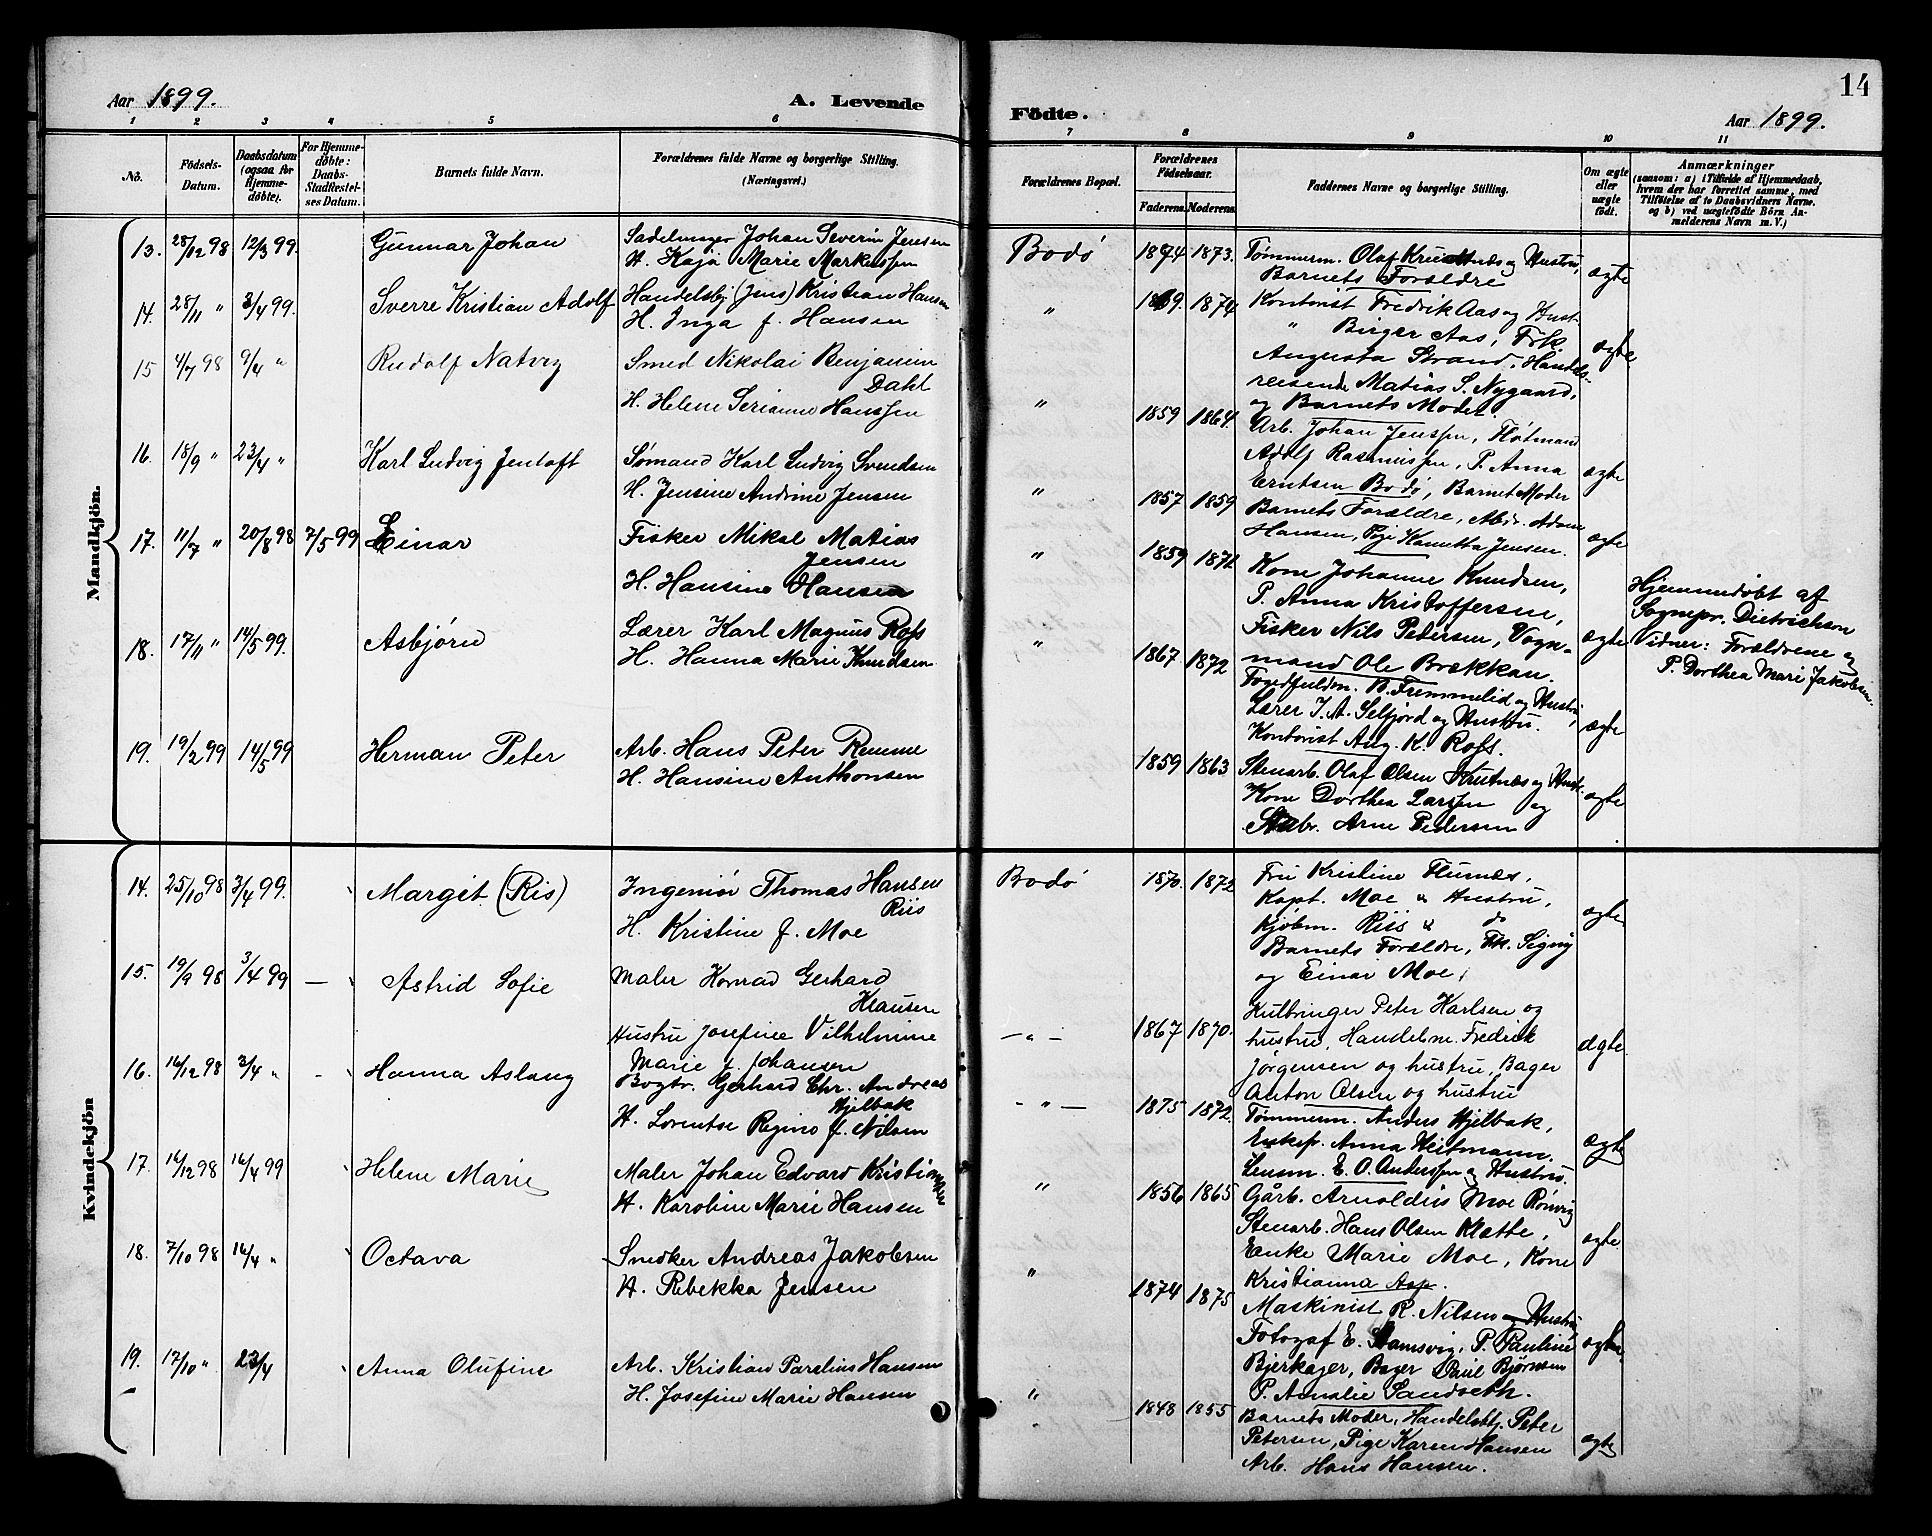 Aar 1899.
A. Levende
Fødte.
Aar 1899.
14
1 2 3 4 5 6 7 8 9 10 11
No.
Fødsels-
Datum.
Daabsdatum
(ogsaa for
Hjemme-
døbte).
For Hjemme-
døbte:
Daabs-
Stadfæstel-
ses Datum.
Barnets fulde Navn.
Forældrenes fulde Navne og borgerlige Stilling.
(Næringsvei.)
Forældrenes Bopæl.
Forældrenes
Fødselsaar.
Faderens. Moderens.
Faddernes Navne og borgerlige Stilling.
Om ægte
eller
uægte
født.
Anmærkninger
(saasom: a) i Tilfælde af Hjemmedaab,
hvem der har forrettet samme, med
Tilføielse af to Daabsvidners Navne.
og b) ved uægtefødte Børn An-
melderens Navn m. V.)
Mandkjøn.
13. 28/12 98 12/3 99. Gunnar Johan
Sadelmager Johan Severin Jensen
H. Kaja Marie Markussen
Bodø 1874 1873.
Tømmerm. Olaf Krutnæs og Hustru,
Barnets Forældre
ægte
14. 28/11 " 3/4 99. Sverre Kristian Adolf
Handelsbj. (Jens) Kristian Hansen
H. Inga f. Hansen
" 1869. 1874
Kontorist Fredrik Aas og Hust-
" Birger Aas, Frk.
Augusta Strand, Handels-
reisende Matias S. Nygaard,
og Barnets Moder.
ægte
15 4/7 98 9/4 " Rudolf Natvig
Smed Nikolai Benjamin
Dahl
H. Helene Serianne Hanssen
" 1859 1864.
Arb. Johan Jenssen, Fløtmand
Adolf Rasmussen, P. Anna
Erntsen Bodø, Barnet Moder
ægte
16. 18/9 " 23/4 " Karl Ludvig Jentoft
Sømand Karl Ludvig Svendsen
H. Jensine Andrine Jensen
" 1857 1859
Barnets Forældre, Abdr. Adam
Hansen, Pige Hanetta Jensen.
ægte
17. 11/7 " 20/8 98 7/5 99 Einar
Fisker Mikal Matias
Jensen
H. Hansine Hansen
" 1859 1872
Kone Johanne Knudsen,
P. Anna Kristoffersen,
Fisker Nils Pedersen, Vogn-
mand Ole Brækkan.
ægte
Hjemmedøbt af
Sognepr. Dietrichson
Vidner: Forældrene og
P. Dorthea Marie Jakobsen.
18. 17/11 " 14/5 99. Asbjørn
Lærer Karl Magnus Rofs
H. Hanna Marie Knudsen
" 1867 1872
Fogedfuldm. B. Fremmelid og Hustru,
Lærer J. A. Selfjord og Hustru.
Kontorist Aug. K. Rofs.
ægte
19. 19/2 99 14/5 99 Herman Peter
Arb. Hans Peter Remme
H. Hansine Anthonsen
1859 1863
Stenarb. Olaf Olsen Krutnæs og Hustr.
Kone Dorthea Larssen og
Stabr. Arne Pedersen
ægte
Kvindekjøn
14. 25/10 98 3/4 99. Margit (Ris)
Ingeniør Thomas Hansen
Riis
H. Kristine f. Moe
Bodø 1870. 1872
Fru Kristine Flumæs,
Kapt. Moe & Hustru,
Kjøbm. Riis & do
Barnets Forældre, Frk. Signy
og Einar Moe.
ægte
15. 19/9 98 3/4 99 — Astrid Sofie
Maler Konrad Gerhard
Klausen
Hustru Josefine Vilhelmine
Marie f. Johansen
— " — 1867 1870.
Kulbringer Peter Karlsen og
hustru, Handelm. Fredrik
Jørgensen og hustru, Bager
Anton Olsen og hustru
ægte
16. 16/12 98 3/4 " - Hanna Aslaug
Bogtr. Gerhard Chr. Andreas
Hjelbak
H. Lorentse Regine f. Nilsen
- " — 1875 1872.
Tømmerm. Anders Hjelbak,
Enkefr. Anna Heitmann.
Lensm. E. O. Anderssen og Hustru.
ægte
17. 16/12 98 16/4 99 Helene Marie
Maler Johan Edvard Kristiansen
H. Karoline Marie Hansen
" 1856 1865
Gårb. Arnoldus Moe Rønvig
Stenarb. Hans Olsen Klætte,
Enke Marie Moe, Kone
Kristianna Asp.
ægte
18. 7/10 98 16/4 " Octava
Snedker Andreas Jakobsen
H. Rebekka Jensen
" 1874 1875
Maskinist R. Nilsen og Hustru
Fotogaf E. Hamsvig, P. Pauline
Bjerkager, Bager Paul Bjørnsen
P. Amalie Sandseth.
ægte.
19. 17/10 " 23/4 Anna Olufine
Arb. Kristian Parelius Hansen
H. Josefine Marie Hansen
" 1848 1855
Barnets Moder, Handelsbtj. Peter
Petersen, Pige Karen Hansen
Arb. Hans Hansen.
ægte